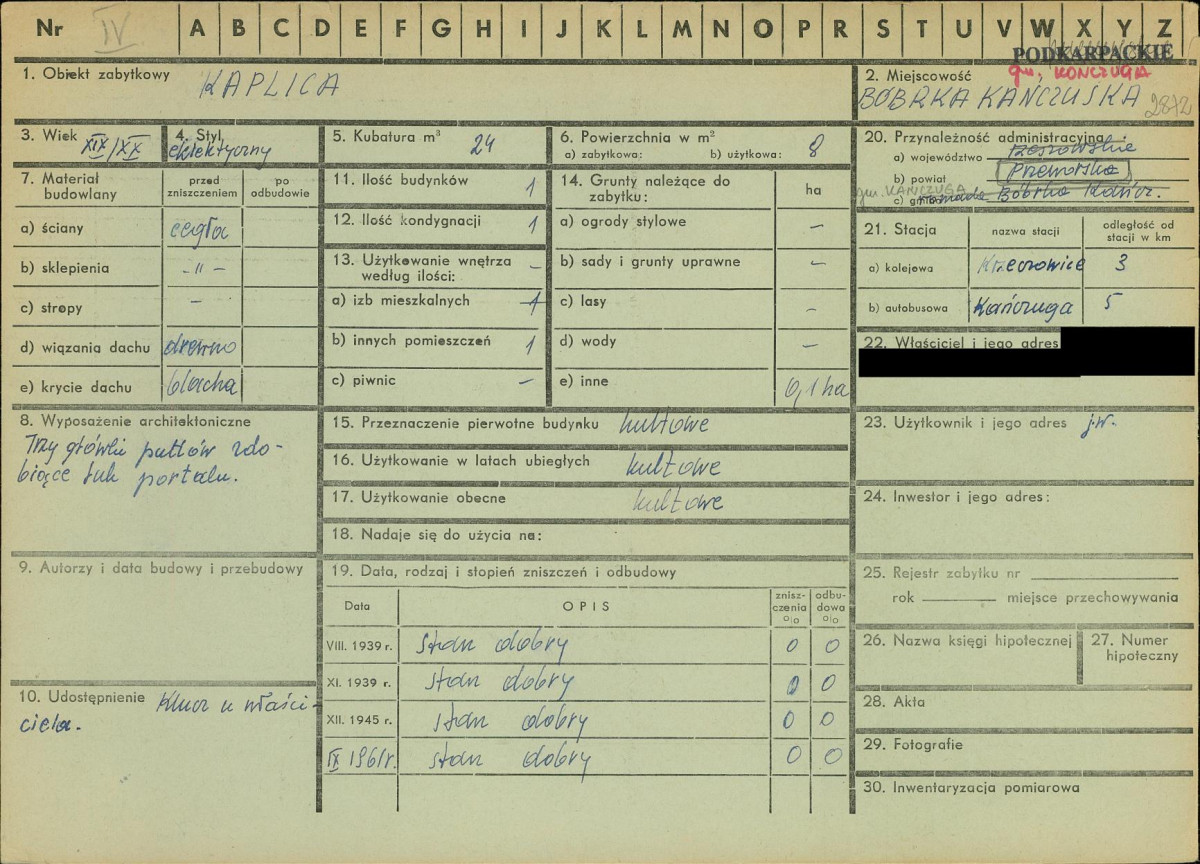 Nr IV A B C D E F G H I J K L M N O P R S T U V W X Y Z
PODKARPACKIE
gm. KAŃCZUGA
1. Obiekt zabytkowy KAPLICA
2. Miejscowość
BÓBRKA KAŃCZUSKA 2872
3. Wiek XIX/XX
4. Styl eklektyczny
5. Kubatura m³ 24
6. Powierzchnia w m²
a) zabytkowa: b) użytkowa: 8
7. Materiał budowlany
przed zniszczeniem
po odbudowie
a) ściany cegła
b) sklepienia -"-
c) stropy -
d) wiązania dachu drewno
e) krycie dachu blacha
8. Wyposażenie architektoniczne
Trzy główki puttów zdo-
biące łuk portalu.
9. Autorzy i data budowy i przebudowy
10. Udostępnienie Klucz u właści-
ciela.
11. Ilość budynków 1
12. Ilość kondygnacji 1
13. Użytkowanie wnętrza -
według ilości:
a) izb mieszkalnych
b) innych pomieszczeń 1
c) piwnic -
14. Grunty należące do
zabytku:
ha
a) ogrody stylowe -
b) sady i grunty uprawne -
c) lasy -
d) wody -
e) inne 0,1 ha
15. Przeznaczenie pierwotne budynku kultowe
16. Użytkowanie w latach ubiegłych kultowe
17. Użytkowanie obecne kultowe
18. Nadaje się do użycia na:
19. Data, rodzaj i stopień zniszczeń i odbudowy
Data OPIS znisz-
czenia
o|o odbu-
dowa
o|o
VIII. 1939 r. stan dobry 0 0
XI. 1939 r. stan dobry 0 0
XII. 1945 r. stan dobry 0 0
IX 1961r. stan dobry 0 0
20. Przynależność administracyjna
a) województwo rzeszowskie
b) powiat Przeworsk
gm. KAŃCZUGA
c) gromada Bóbrka Kańcz.
21. Stacja
nazwa stacji
odległość od
stacji w km
a) kolejowa Krzeczowice 3
b) autobusowa Kańczuga 5
22. Właściciel i jego adres
23. Użytkownik i jego adres j.w.
24. Inwestor i jego adres:
25. Rejestr zabytku nr
rok miejsce przechowywania
26. Nazwa księgi hipotecznej
27. Numer
hipoteczny
28. Akta
29. Fotografie
30. Inwentaryzacja pomiarowa